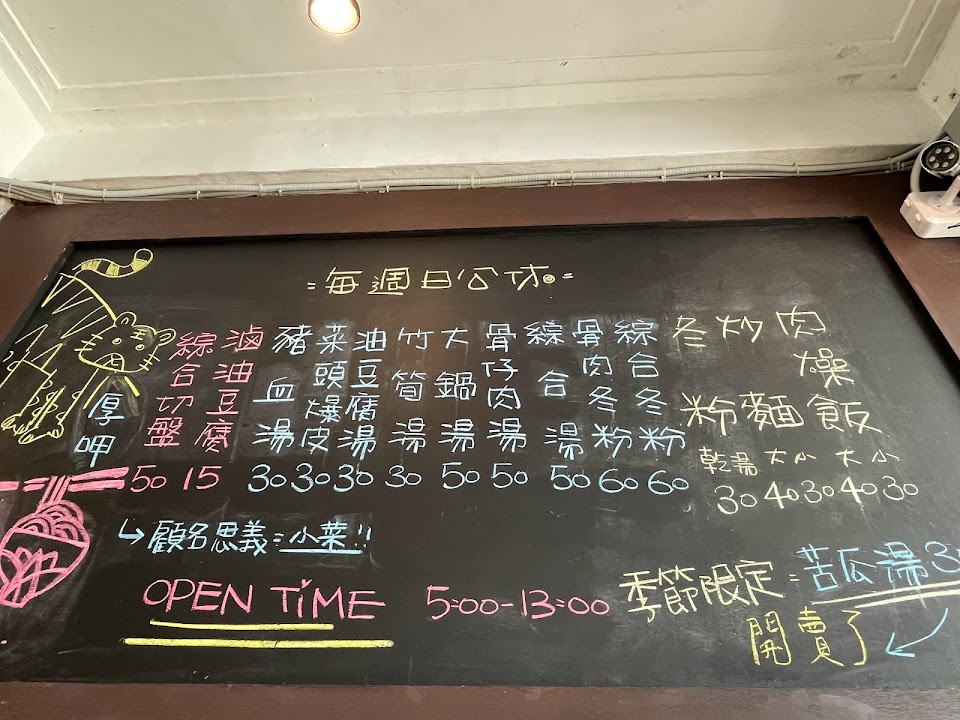 =每週日公休。=
肉燥飯
大小
40 30
炒麵
大小
40 30
冬粉
乾湯
30
綜合冬粉
60
骨肉冬粉
60
綜合湯
50
骨仔肉湯
50
大鍋湯
50
竹筍湯
30
油豆腐湯
30
菜頭爆皮
30
豬血湯
30
滷油豆腐
15
綜合切盤
50
厚呷
顧名思義:小菜!!
OPEN TIME 5:00-13:00
季節限定=苦瓜湯
開賣了